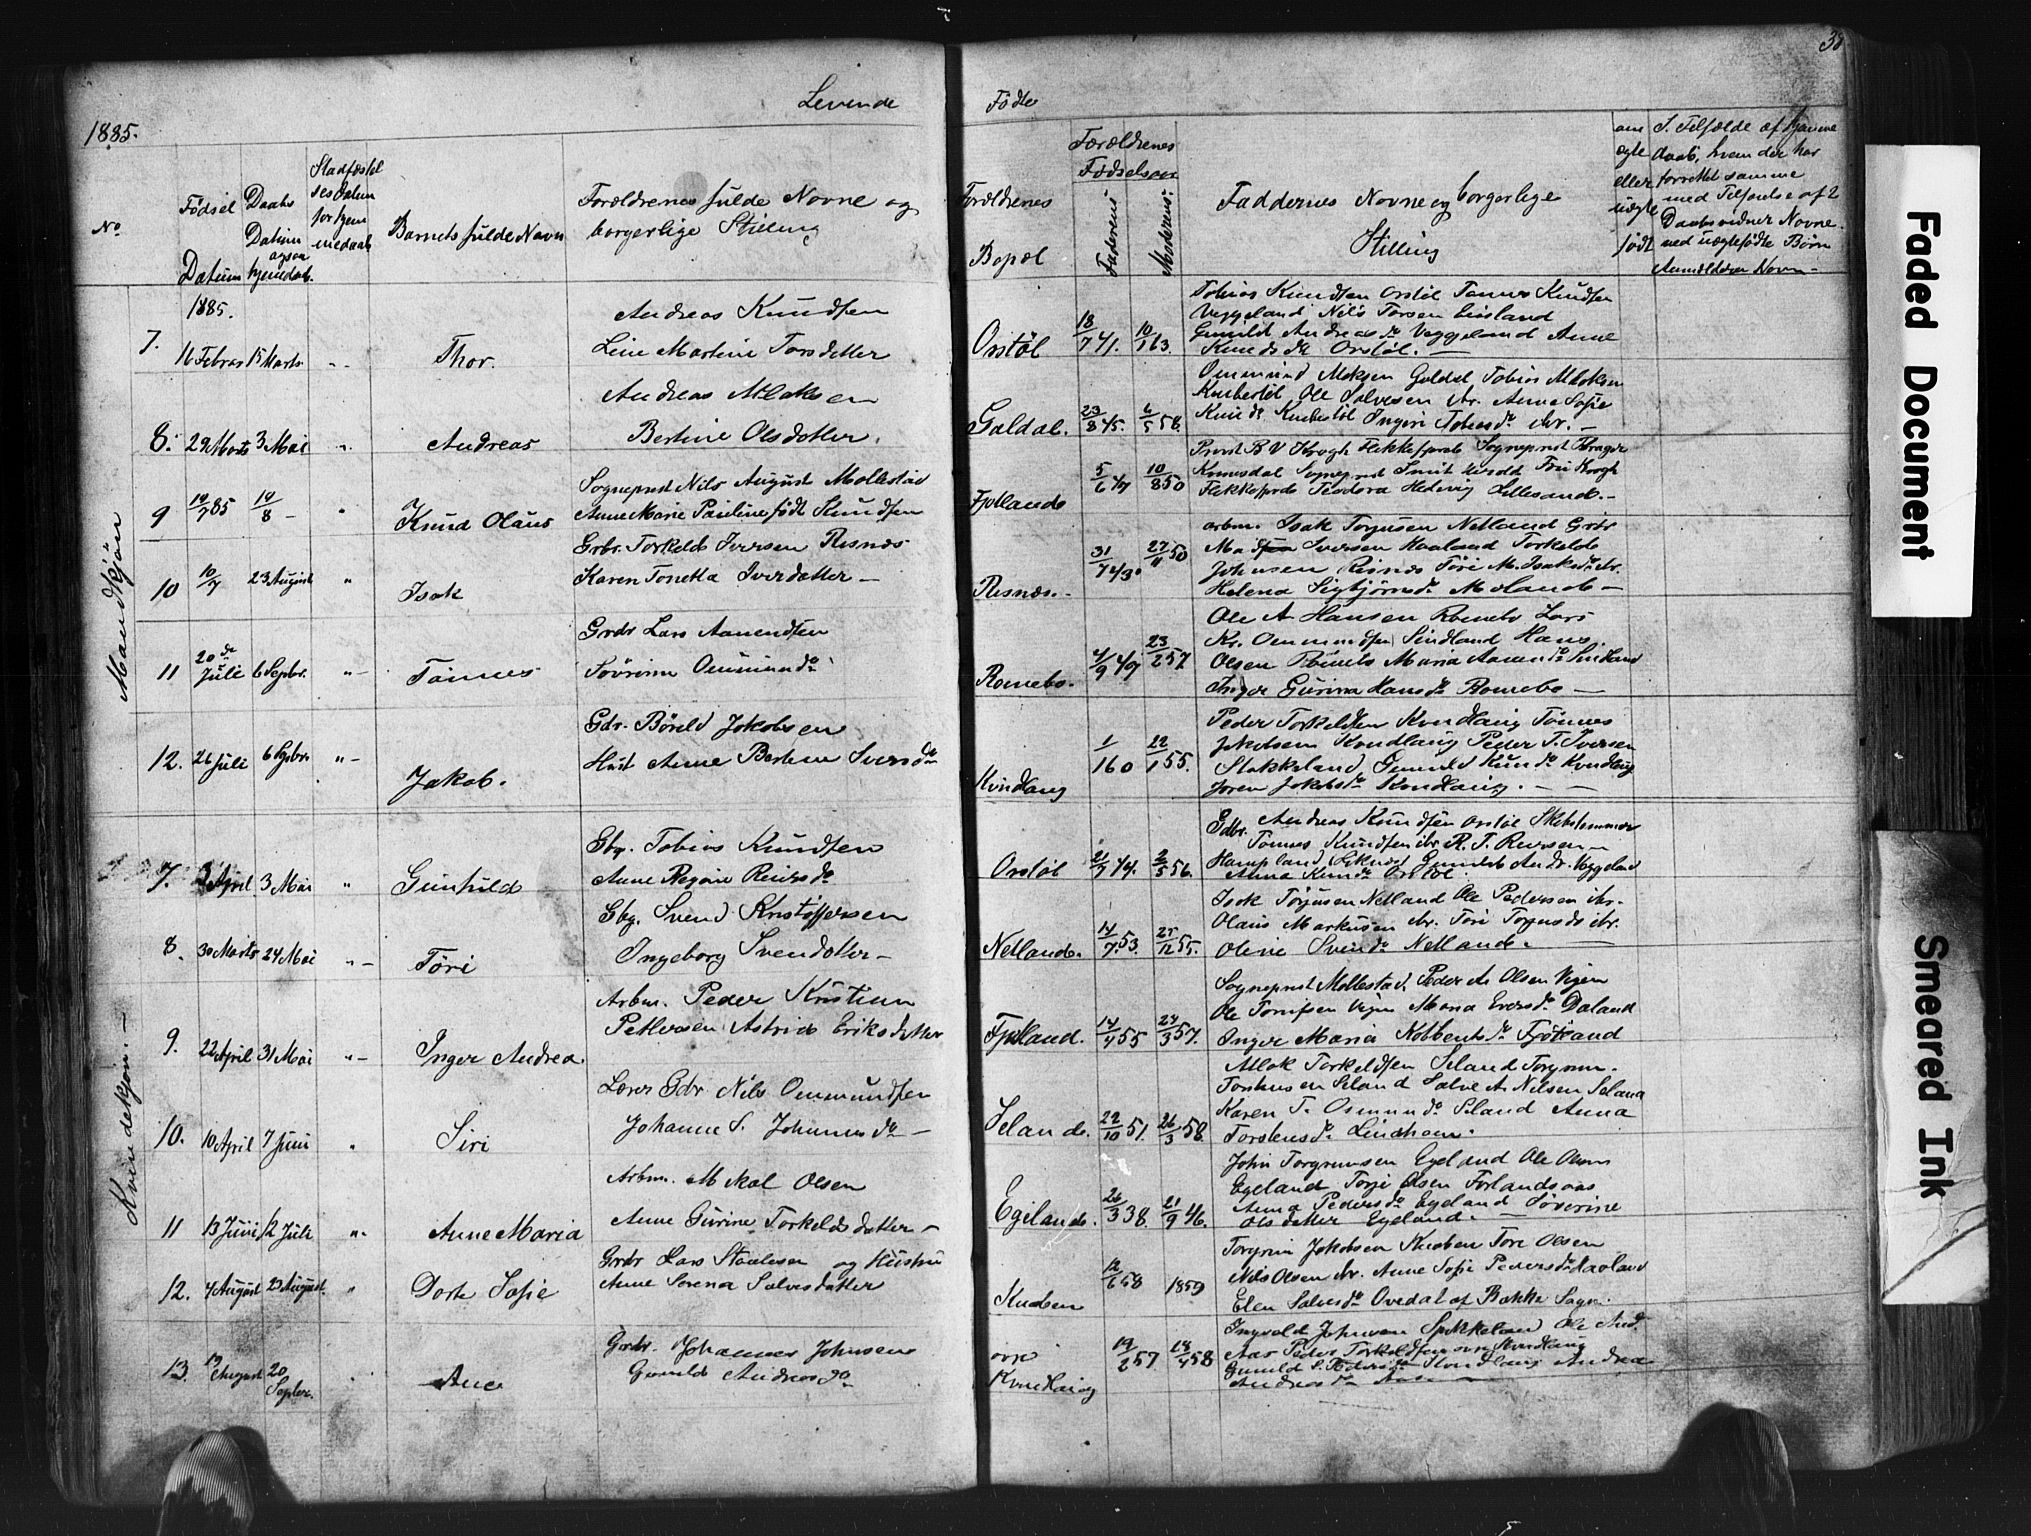 38
Levende
Fødte
1885.
No
Fødsel
Datum
Daabs
Datum
ogsaa
hjemedaab.
Stadfæstel
sesdatum
for hjem
medaab
Barnets fulde Navn
Forældrenes fulde Navne og
borgerlige Stilling
Forældrenes
Bopæl
Forældrenes
Fødselsaar
Faderens
Moderens
Faddernes Navne og borgerlige
Stilling
om
ægte
eller
uægte
født
I Tilfælde af hjemme
daab, hvem der har
forrettet samme
med Tilføielse af 2
Daabsvidner Navne.
ved uægtefødte Børn
Anmelderen Navn
Mandkjøn
1885.
7.
16 Febras 15 Marts
Thor.
Andreas Knudsen
Line Martine Torsdatter
Orstøl
18/7 41. 10/1 63.
Tobias Knudsen Orstøl Tønnes Knudsen
Veggeland Nils Torsen Lisland
Gunild Andreasda Veggeland Anne
Knudsda Orstøl.
8. 29 Marts 3 Mai
Andreas
Andreas Atlaksen
Bertine Olsdatter.
Galdal. 23/8 45. 6/5 58.
Ommund Atlaksen Galdal Tobias Atlaksen
Knabestøl Ole Salvesen ibr. Anne Sofie
Knudsda Knabestøl Ingeri Tobiasda ibr.
9 19/7 85 19/8
Knud Olaus
Sogneprest Nils August Mollestad
Anne Marie Pauline født Knudsen
Fjotlands 5/6 49 10/8 50
Provst B V Krogh Flekkefjord Sogneprest
Kvinesdal Sogneprest Smit Fru Krogh
Flekkefjord Teodora Hedevig Lillesand.
10 10/7 23 August
Isak
Grbr. Torkeld Iversen Risnæs
Karen Tonetta Iversdatter
Risnæs. 31/7 43. 27/11 50
arbm. Isak Torjusen Netland Grbr
Iversen Haaland Torkeld
Johnsen Risnæs Tøri M. Isaksda ibr.
Helena Sigbjørnsda Netland
11 20de Juli 6 Sepbr.
Tønnes
Grdr Lars Aanendsen
Sørine Ommundsda
Romebo. 4/9 49 23/2 57
Ole A Hansen Romebo Lars
Kr. Ommundsen Sindland Hans
Olsen Romebo Maria Aanensda Sindland
Inger Gurina Hansda Romebo
12. 26 Juli 6 Sepbr.
Jakob.
Gdr. Børild Jakobsen
Hust Anne Bertine Iversda
Kvindlaug 1/1 60 22/1 55.
Peder Torkeldsen Kvindlaug Tønnes
Jakobsen Kvindlaug Peder T. Iversen
Stakkeland Gunuld Knudsda Kvindlaug
Joren Jakobsda Kvindlaug.
Kvindekjøn.
7. 2 April 3 Mai
Gunhuld
Gbr. Tobias Knudsen
Anne Regine Reiersda
Orstøl 21/7 44. 2/5 56.
Gdbr. Andreas Knudsen Orstøl Skibstømmer
Tønnes Knudsen ibr R. T. Reiersen
Hampland Liknes Gunild An.dr. Veggeland
Anna Knudsda Orstøl.
8. 30 Marts 24 Mai
Tøri
Gbr. Svend Kristoffersen
Ingeborg Svendatter
Netland. 14/7 53. 25/12 55.
Isak Torjusen Netland Ole Pedersen ibr.
Olaus Markusen ibr. Tøri Torjusds ibr.
Oline Svendsda Netland.
9. 22 April 31 Mai
Inger Andrea
Arbm. Peder Kristian
Pettersen Astrid Eriksdatter
Fjotland. 14/4 55 24/3 57.
Sogneprest Mollestad, Peder A. Olsen Vigen
Ole Tønnesen Vigen Maria Eversda Daland
Inger Maria Nobbentsda Fjotland
10. 10 April 7 Juni
Siri
Lærer Gdr Nils Ommundsen
Johanne S. Johannesda
Seland. 22/10 51. 26/3 58.
Atlak Torkeldsen Seland Torgrim
Torstensen Seland Salve A. Nilsen Seland
Karen T. Osmundsda Seland Anna
Torstensda Lindhom.
11 13 Juni 12 Juli
Anne Maria
Arbm. Mikal Olsen
Anne Gurine Torkeldsdatter
Egeland. 26/3 38. 21/9 46.
John Torgrimsen Egeland Ole Olsen
Egeland Torje Olsen Forlandsaas
Anna Pedersda Egeland Søverine
Olsdatter Egeland.
12. 4 August 23 August.
Dorte Sofie
Grdr Lars Staalesen og Hustru
Anne Serena Salvesdatter
Knaben 12/6 58 1859
Torgrim Jakobsen Knaben Tore Olsen
Nils Olsen ibr. Anne Sofie Pedersda Haaland
Elen Salvesda Ovedal af Bakke Sogn.
13. 19 August 20 Septbr.
Ane
Grdr. Johannes Johnsen
Gunuld Andreasda
øvre
Kvindlaug 19/2 57 18/4 58
Ingvald Johnsen Stakkeland Ole And.
Aas Peder Torkeldsen øvre Kvindlaug
Gunuld S. Pedersda Kvindlaug Andrea
Andreasda
Faded Document
Smeared Ink